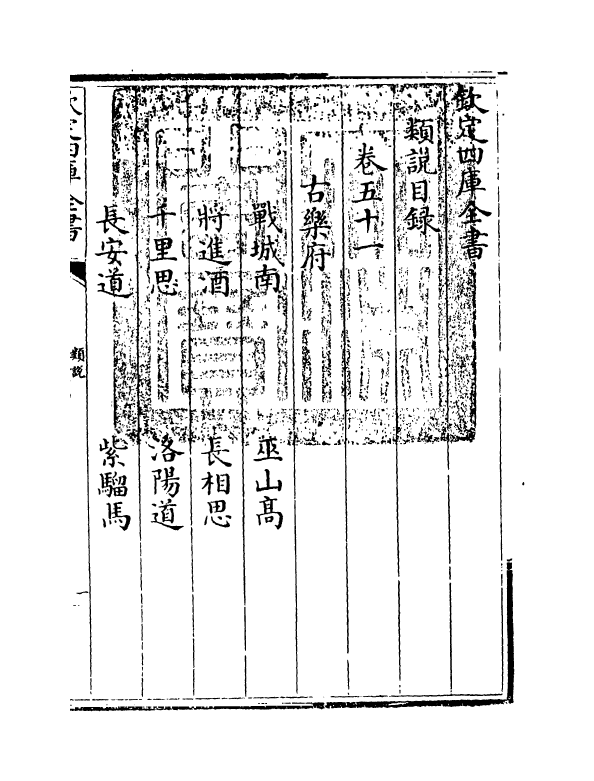 欽定四庫全書
類說目録
卷五十一
古樂府
戰城南 巫山髙
將進酒 長相思
千里思 洛陽道
長安道 紫騮馬
欽定四庫全書
類說
一